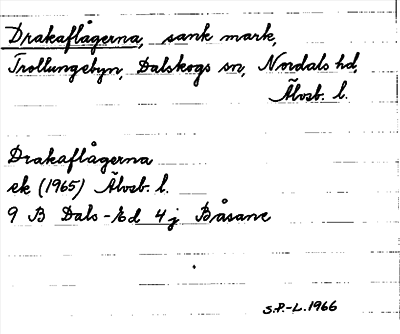 Drakaflågerna, sank mark,
Trollungebyn, Dalskogs sn, Nordals hd,
Älvsb. l.
Drakaflågerna
ek (1965) Älvsb. l.
9 B Dals-Ed 4 j Båsane
S.P.-L. 1966